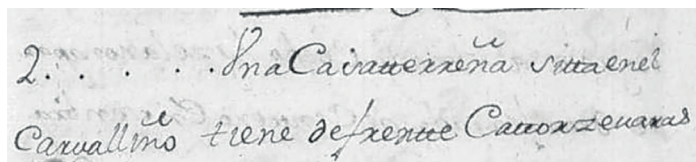 2. . . . . . Vna Casa tterreña sitta en el
Carvalliño tiene de frentte Cattorze varas